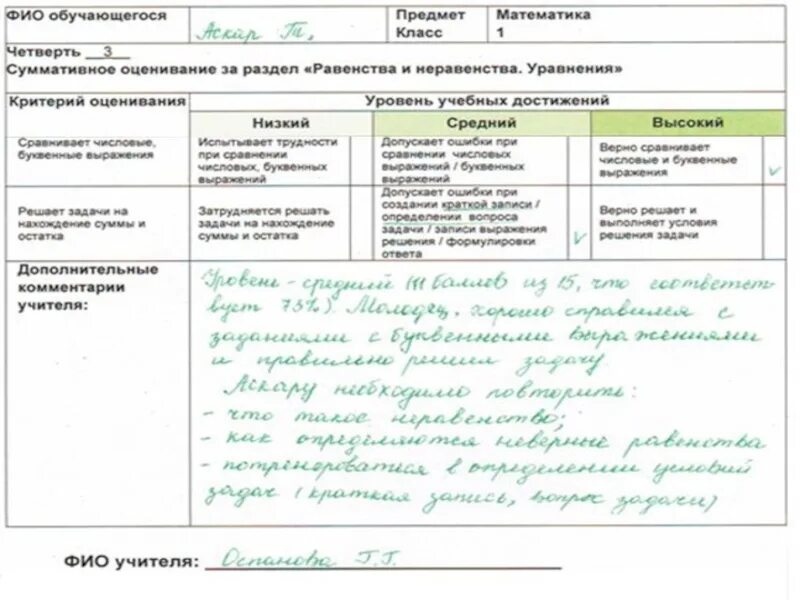 ФИО обучающегося Аскар Т. Предмет Математика
Класс 1
Четверть 3
Суммативное оценивание за раздел «Равенства и неравенства. Уравнения»
Критерий оценивания Уровень учебных достижений
Низкий Средний Высокий
Сравнивает числовые,
буквенные выражения
Испытывает трудности
при сравнении
числовых, буквенных
выражений
Допускает ошибки при
сравнении числовых
выражений / буквенных
выражений
Верно сравнивает
числовые и буквенные
выражения ✓
Решает задачи на
нахождение суммы и
остатка
Затрудняется решать
задачи на нахождение
суммы и остатка
Допускает ошибки при
создании краткой записи /
определении вопроса
задачи / записи выражения
решения / формулировки
ответа ✓
Верно решает и
выполняет условия
решения задачи
Дополнительные
комментарии
учителя:
Уровень - средний (11 баллов из 15, что соответст
вует 73%). Молодец, хорошо справился с
заданиями с буквенными выражениями
и правильно решил задачу.
Аскару необходимо повторить:
- что такое неравенство;
- как определяются неверные равенства
- потренироваться в определении условий
задач (краткая запись, вопрос задачи)
ФИО учителя: Оспанова Г.Г.